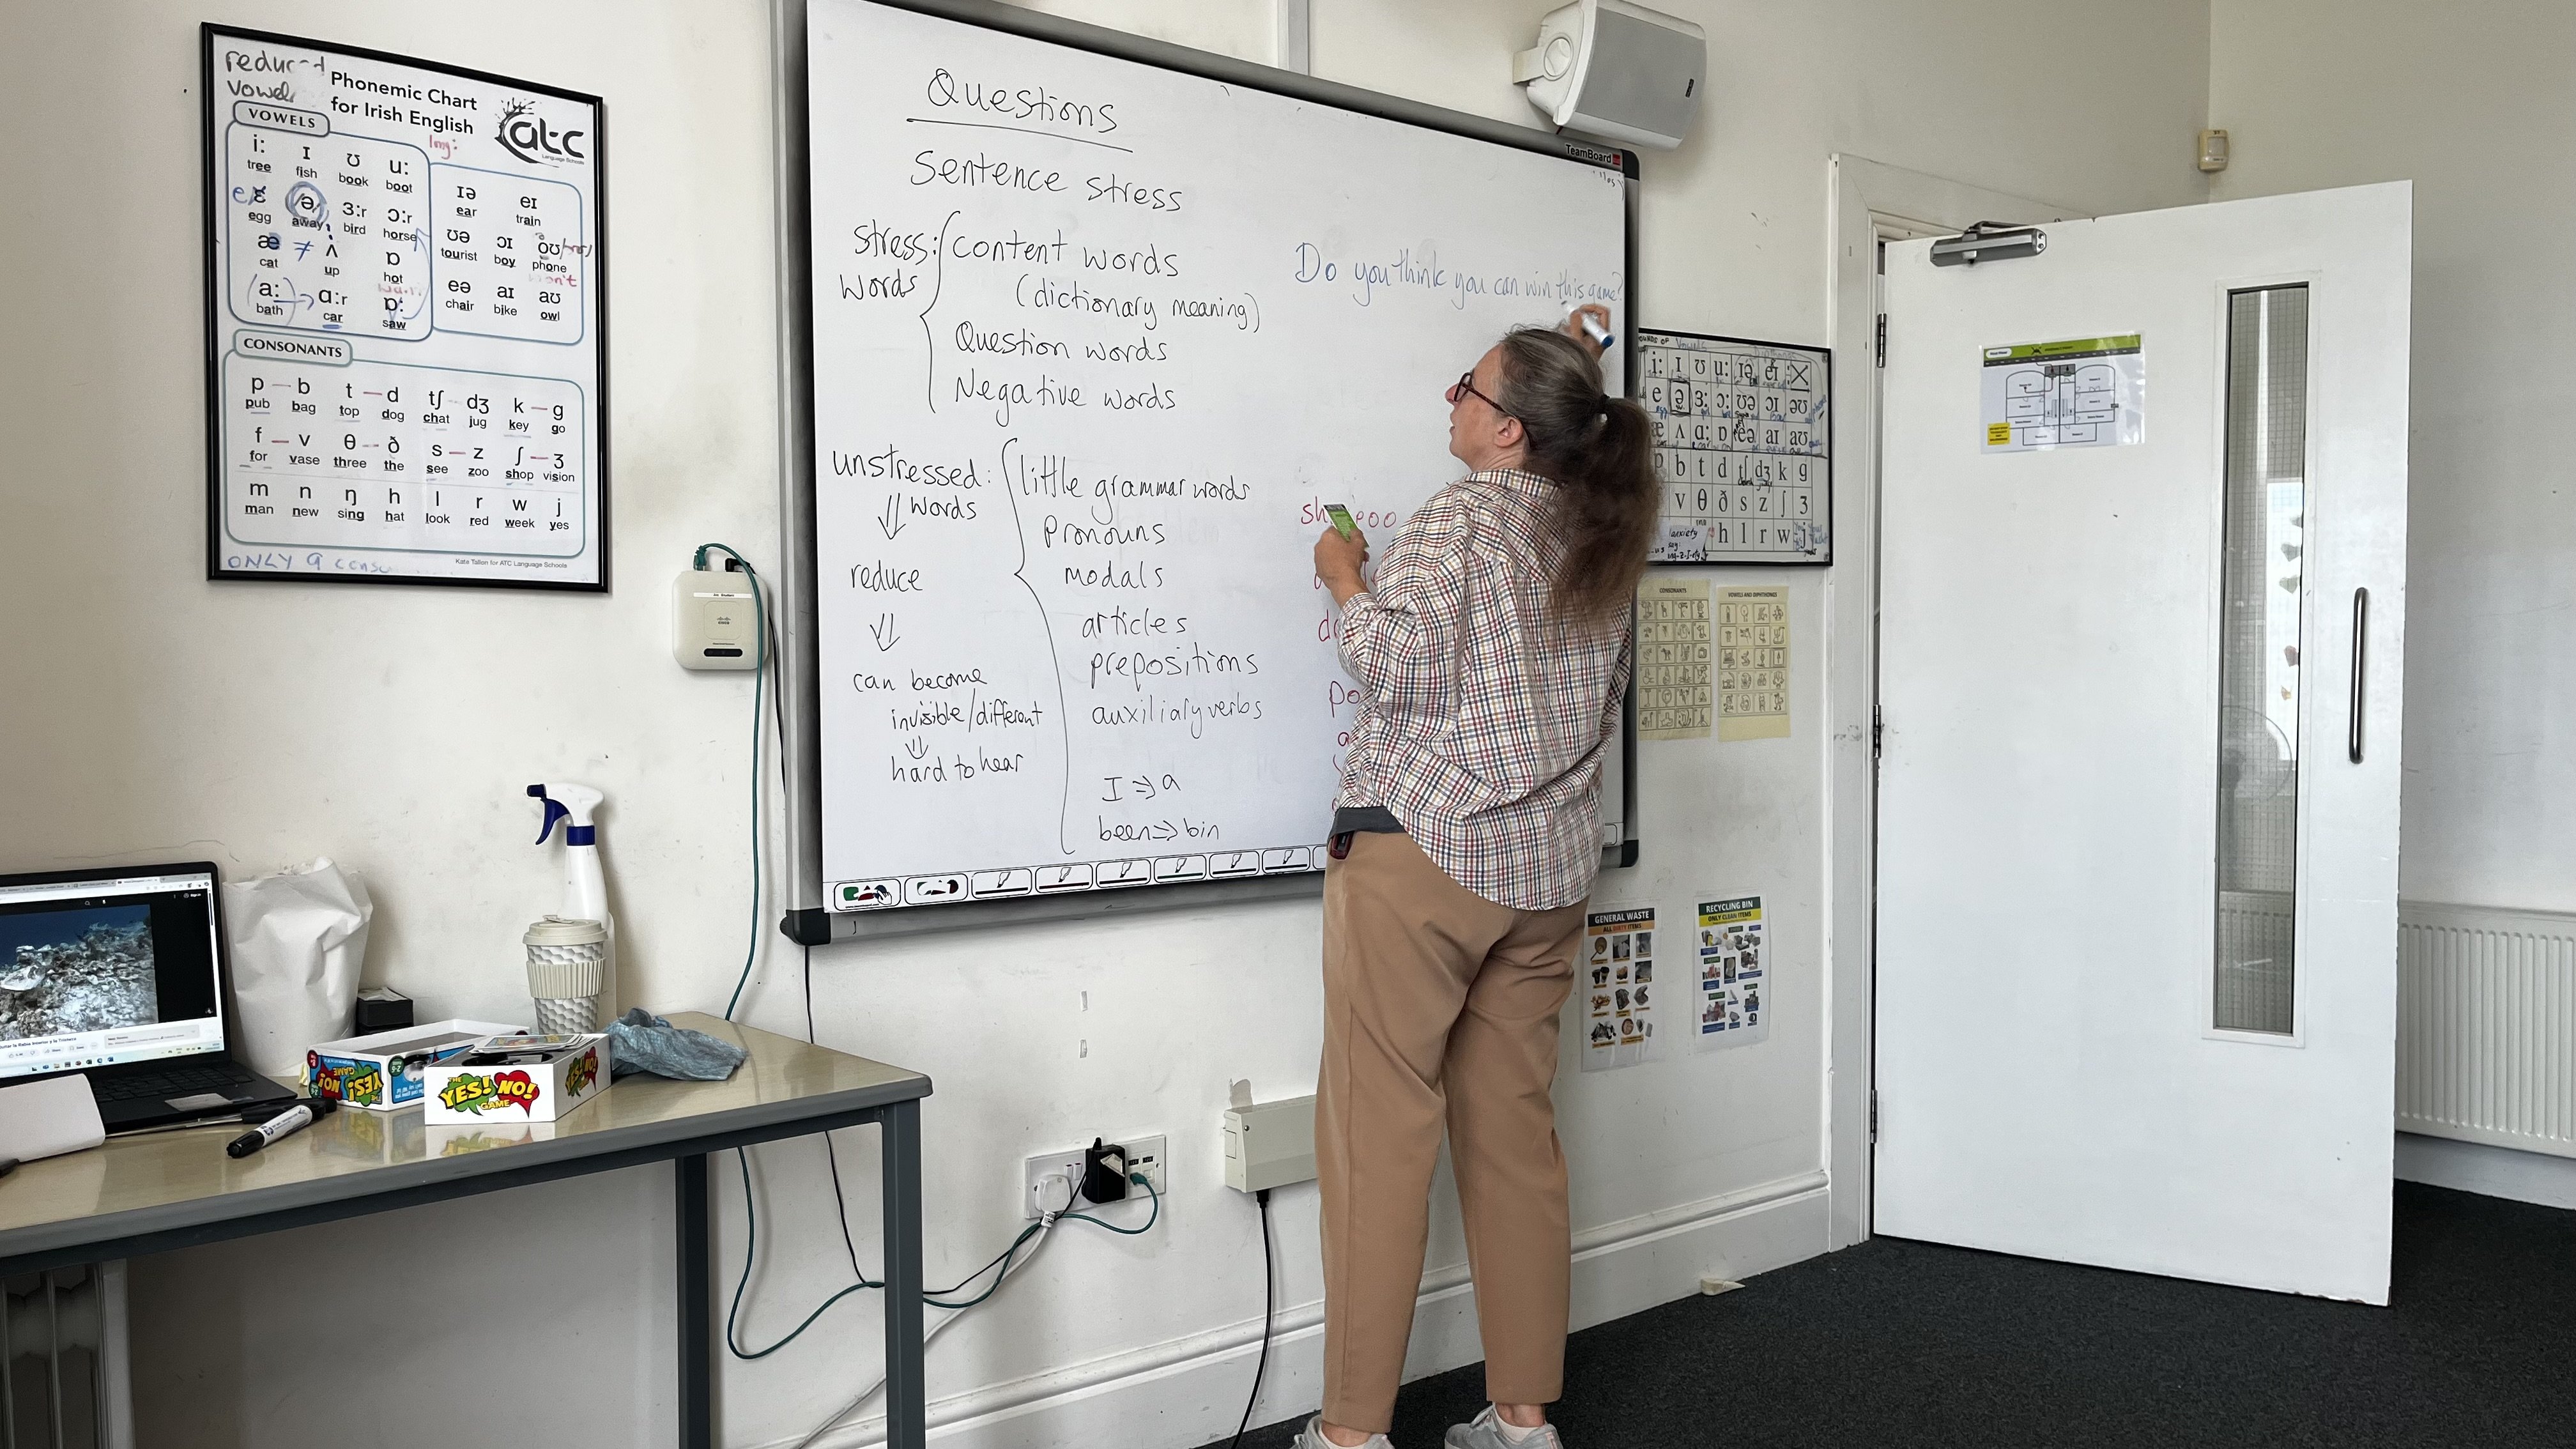 reduced
vowels
Phonemic Chart
for Irish English
atc
Language Schools
VOWELS
long:
i: ɪ ʊ u:
tree fish book boot
e ɛ ə ɜ:r ɔ:r
egg away bird horse
æ ≠ ʌ ɒ
cat up hot
a: ɑ:r ɒ:
bath car saw
ɪə eɪ
ear train
ʊə ɔɪ oʊ
tourist boy phone
eə aɪ aʊ
chair bike owl
CONSONANTS
p b t d tʃ dʒ k g
pub bag top dog chat jug key go
f v θ ð s z ʃ ʒ
for vase three the see zoo shop vision
m n ŋ h l r w j
man new sing hat look red week yes
ONLY 9 cons
Kate Tallon for ATC Language Schools
Questions
Sentence stress
stress: content words
words
(dictionary meaning)
Question words
Negative words
unstressed: little grammar words
words
pronouns
reduce
modals
articles
prepositions
can become
invisible/different
auxiliary verbs
hard to hear
I ⇒ a
been ⇒ bin
TeamBoard
Do you think you can win this game?
sh poo
po
i: ɪ ʊ u: ɪə eɪ
e ə ɜ: ɔ: ʊə ɔɪ əʊ
æ ʌ ɑ: ɒ eə aɪ aʊ
p b t d tʃ dʒ k g
v θ ð s z ʃ ʒ
h l r w j
anxiety
CONSONANTS
VOWELS AND DIPHTHONGS
GENERAL WASTE
ALL DIRTY ITEMS
RECYCLING BIN
ONLY CLEAN ITEMS
THE
YES! NO!
GAME
YES! NO!
GAME